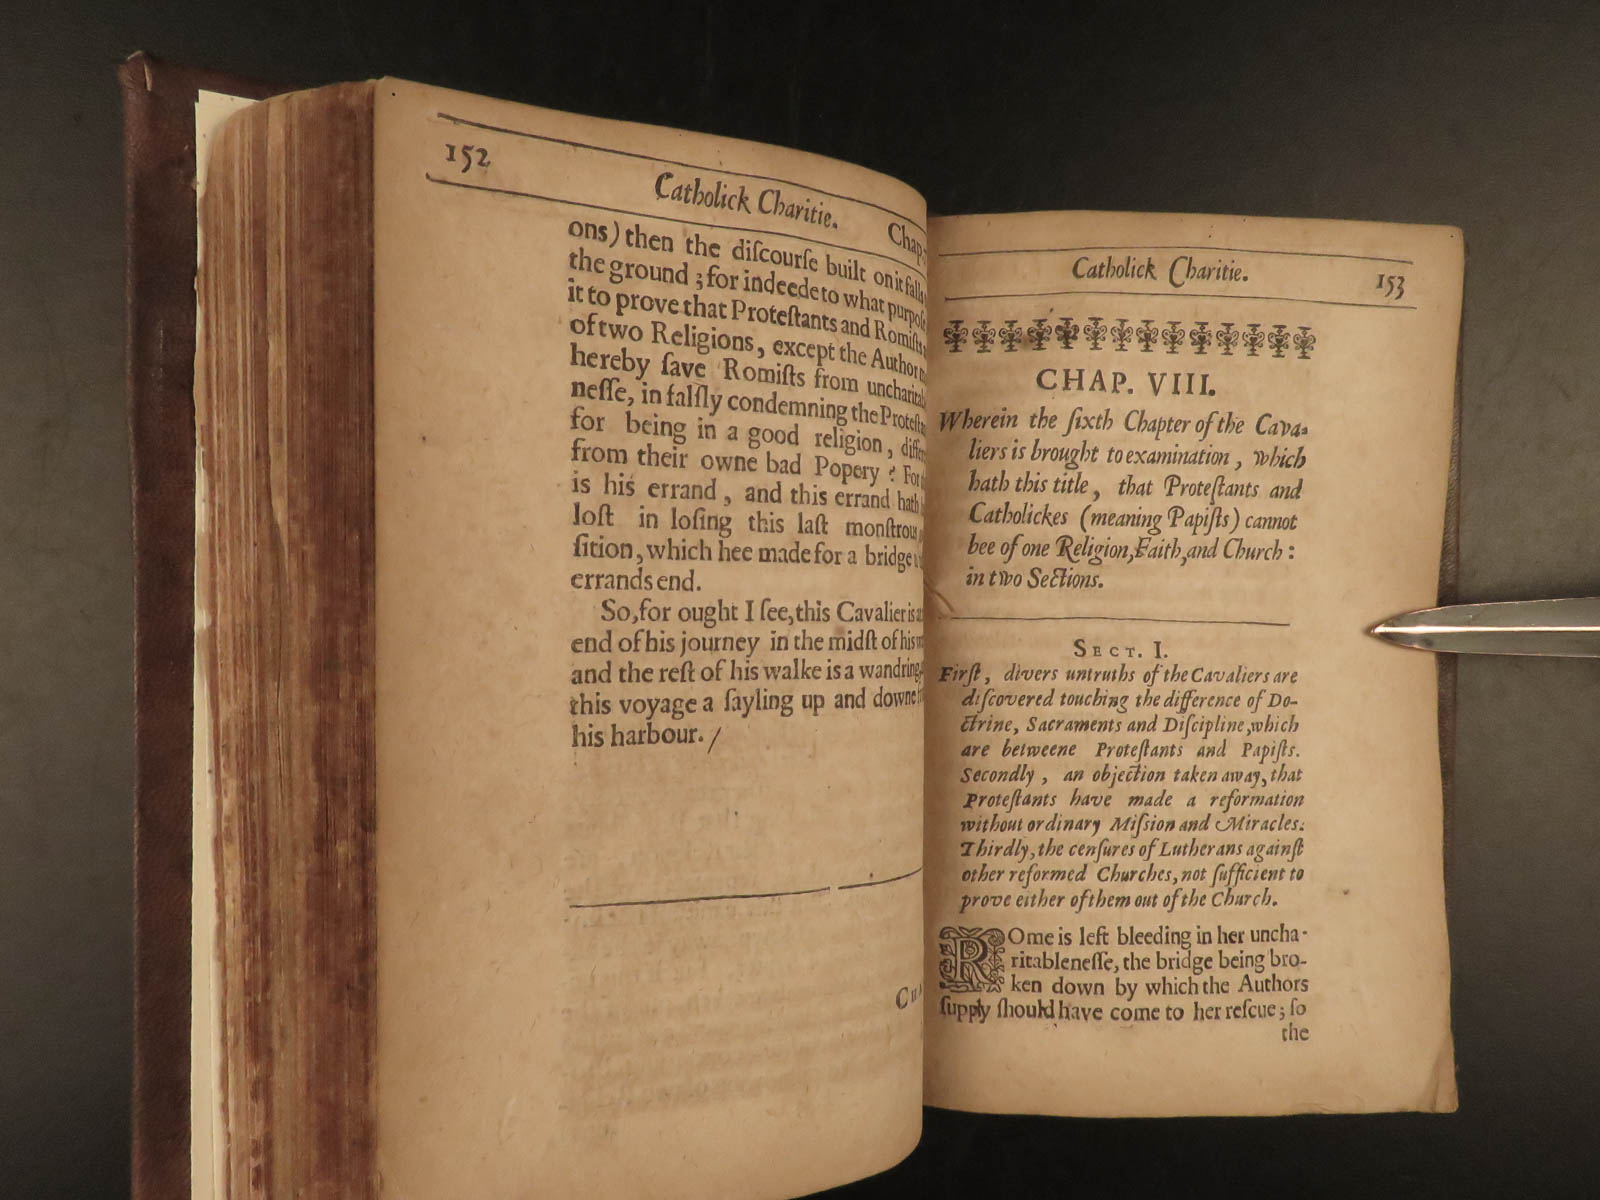 152
Catholick Charitie.
ons) then the diſcourſe built on it falls
the ground; for indeede to what purpoſe
it to prove that Proteſtants and Romiſts
of two Religions, except the Author
hereby ſave Romiſts from
neſſe, in falſly condemning the
for being in a good religion,
from their owne bad Popery? For
is his errand, and this errand hath
loſt in loſing this laſt
ſition, which hee made for a bridge
errands end.
So, for ought I ſee, this Cavalier is
end of his journey in the midſt of his
and the reſt of his walke is a wandring,
this voyage a ſayling up and downe
his harbour. /
Catholick Charitie.
153
CHAP. VIII.
Wherein the ſixth Chapter of the Cava-
liers is brought to examination, which
hath this title, that Proteſtants and
Catholickes (meaning Papiſts) cannot
bee of one Religion, Faith, and Church:
in two Sections.
SECT. I.
Firſt, divers untruths of the Cavaliers are
diſcovered touching the difference of Do-
ctrine, Sacraments and Diſcipline, which
are betweene Proteſtants and Papiſts.
Secondly, an objection taken away, that
Proteſtants have made a reformation
without ordinary Miſsion and Miracles.
Thirdly, the cenſures of Lutherans againſt
other reformed Churches, not ſufficient to
prove either of them out of the Church.
ROme is left bleeding in her uncha-
ritableneſſe, the bridge being bro-
ken down by which the Authors
ſupply ſhould have come to her reſcue; ſo
the